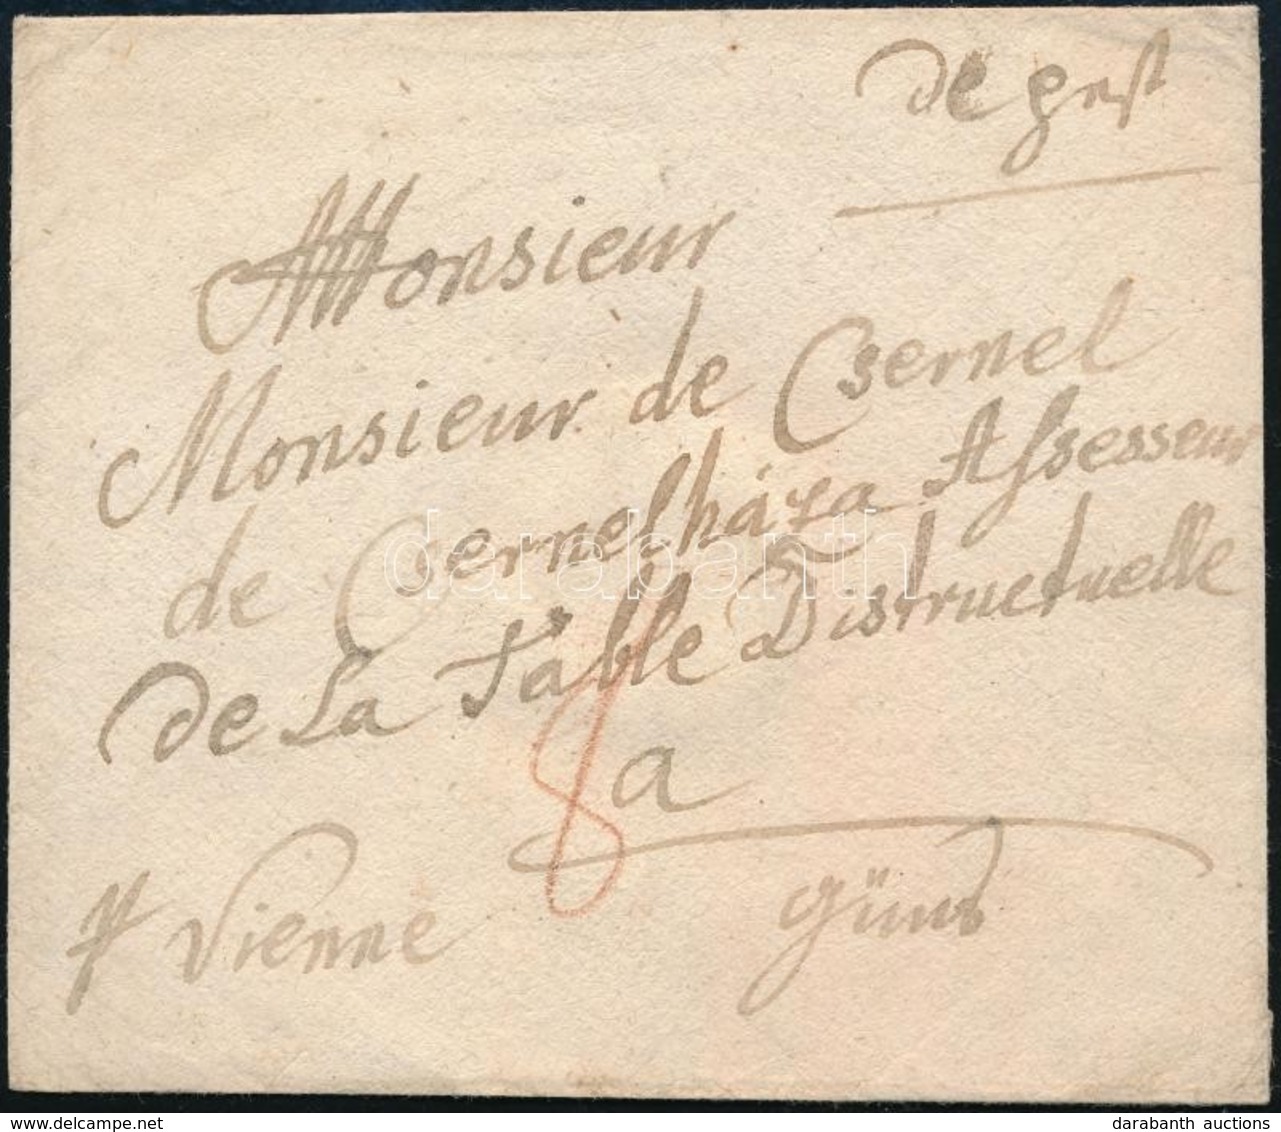 de pest
Monsieur
Monsieur de Csernel
de Csernelháza Assesseur
de La Table Districtuelle
8
a
p Vienne
güns
darabanth
darabanth auctions